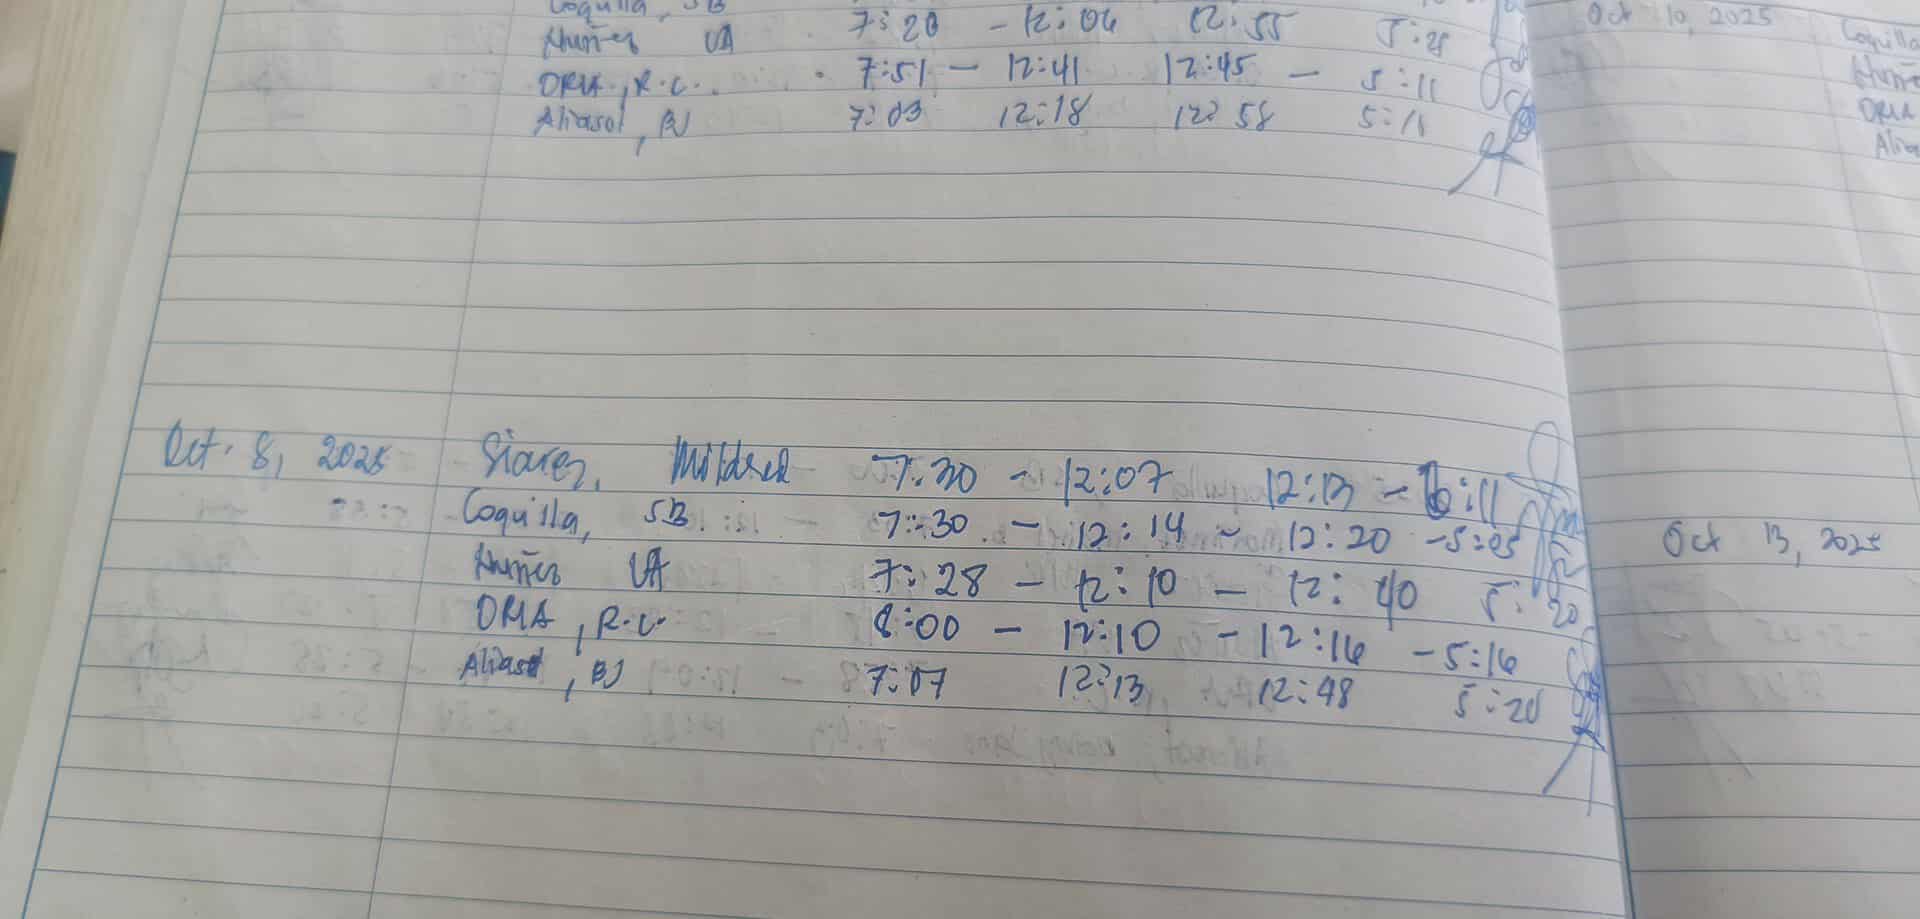 Coquilla, SB
Nuñez VA 7:20 - 12:06 12:55 5:28
ORIA, R.C. 7:51 - 12:41 12:45 - 5:11
Aliasot, BJ 7:03 12:18 12:58 5:18
Oct. 8, 2025 Siarez, Mildred 7:30 - 12:07 12:13 - 6:11
Coquilla, SB 7:30 - 12:14 - 12:20 - 5:05
Nuñez VA 7:28 - 12:10 - 12:40 5:20
ORIA, R.C. 8:00 - 12:10 - 12:16 - 5:16
Aliasot, BJ 7:07 12:13 12:48 5:20
Oct 10, 2025 Coquilla
ORIA
Oct 13, 2025